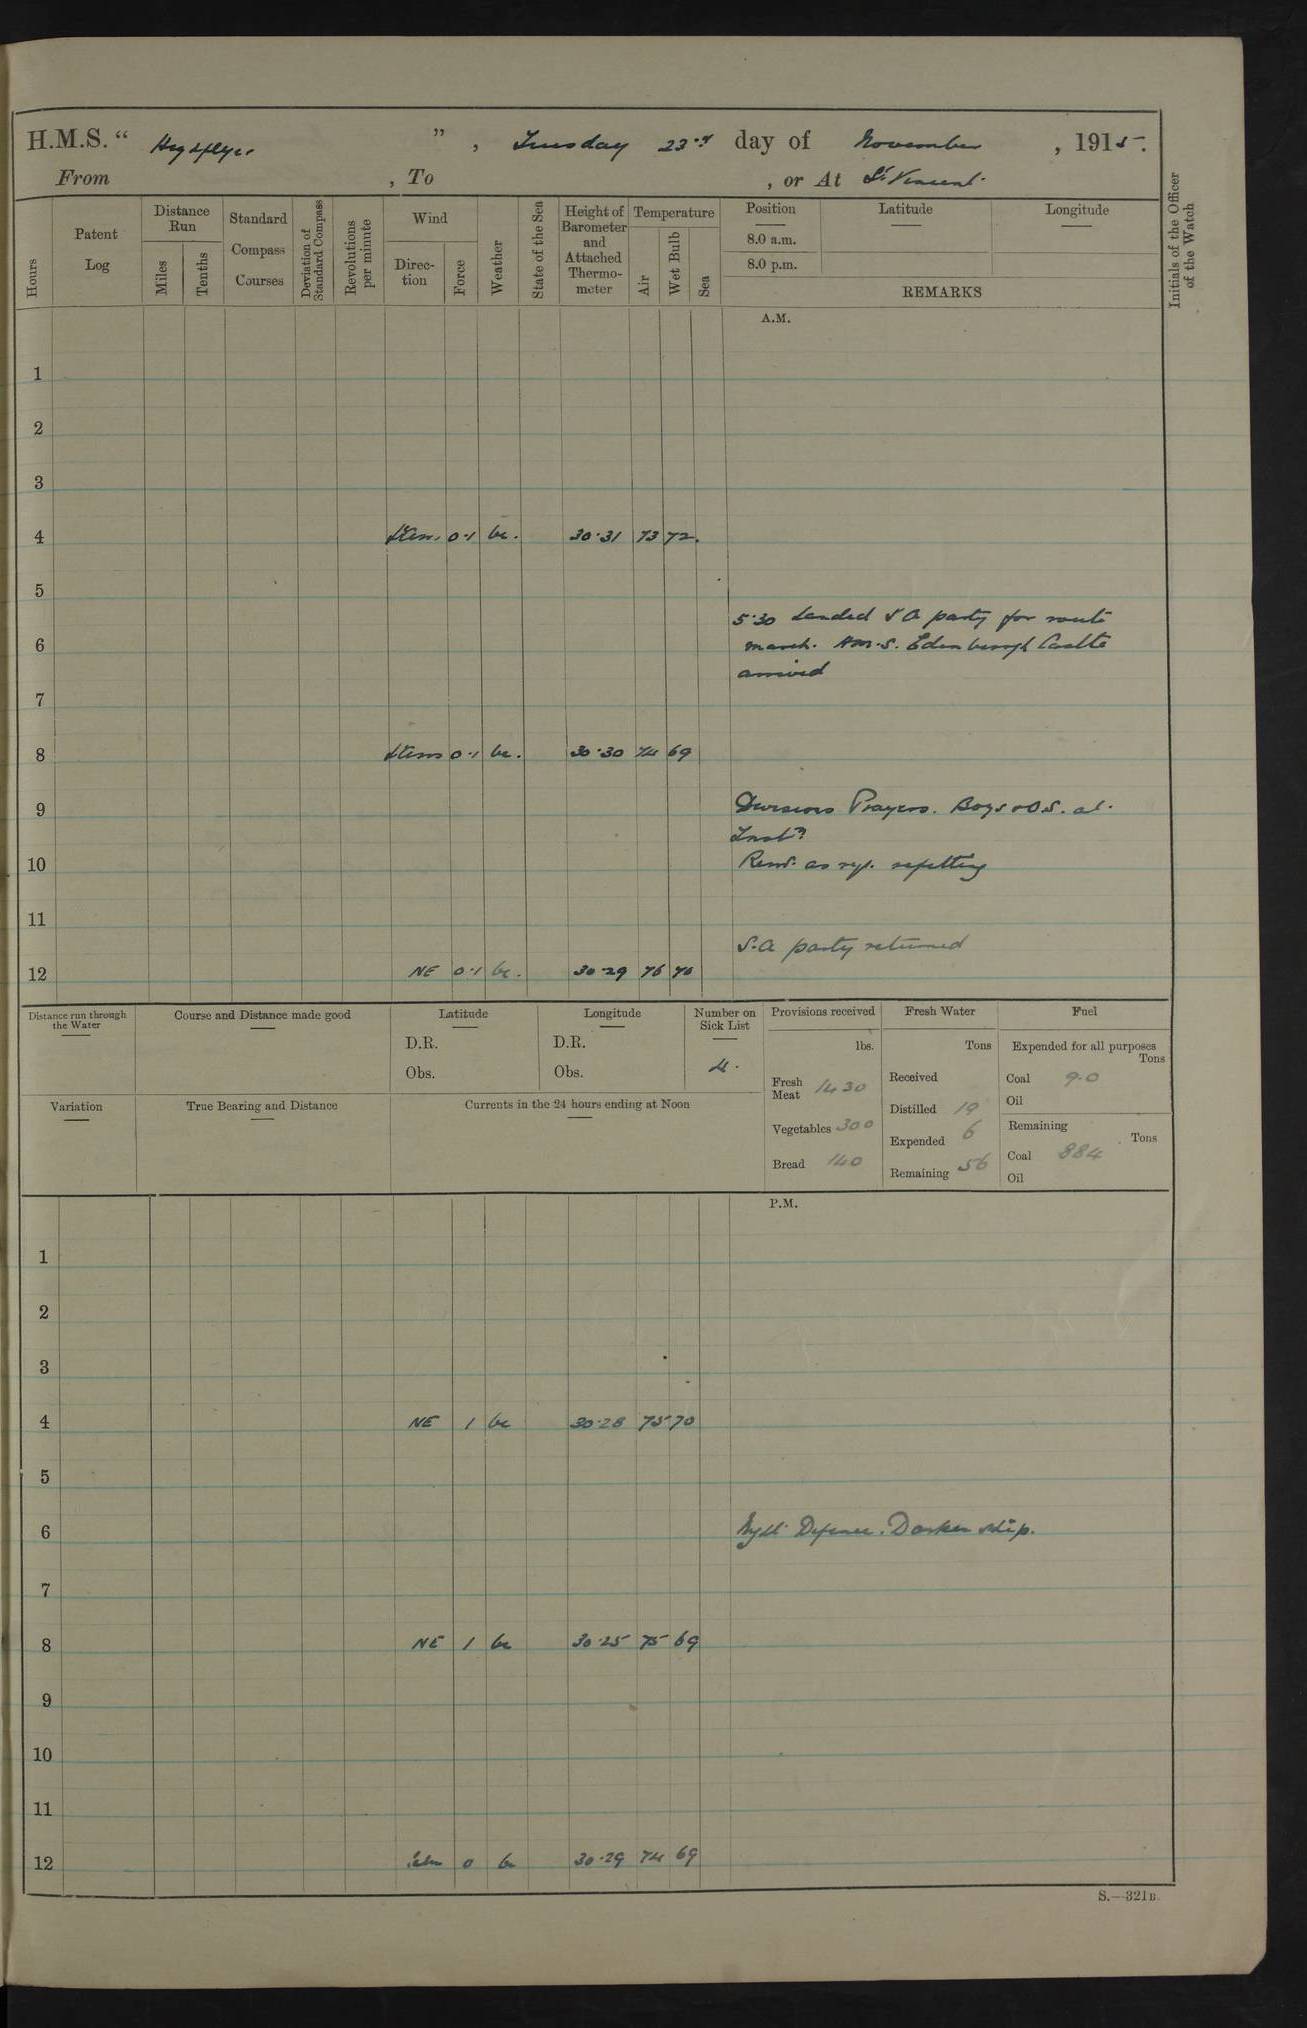 H.M.S. “ Highflyer ” , Tuesday 23rd day of November , 1915.
From , To , or At St Vincent.
Hours
Patent Log
Distance Run
Miles
Tenths
Standard Compass Courses
Deviation of Standard Compass
Revolutions per minute
Wind
Direc-tion
Force
Weather
State of the Sea
Height of Barometer and Attached Thermo-meter
Temperature
Air
Wet Bulb
Sea
Position
8.0 a.m.
8.0 p.m.
Latitude
Longitude
REMARKS
Initials of the Officer of the Watch
A.M.
1
2
3
4 0.1 bc. 30.31 73 72.
5
5.30 Landed S A party for route
6 march. H.M.S. Edinburgh Castle
arrived
7
8 0.1 bc. 30.30 74 69
9 Divisions Prayers. Boys & O.S. at
Instn
10 Remr. as req. refitting
11
S.A party returned
12 NE 0.1 bc. 30.29 76 70
Distance run through the Water
Course and Distance made good
Latitude
D.R.
Obs.
Longitude
D.R.
Obs.
Number on Sick List
4.
Provisions received
lbs.
Fresh Meat 1430
Vegetables 300
Bread 140
Fresh Water
Tons
Received
Distilled 19
Expended 6
Remaining 56
Fuel
Expended for all purposes
Tons
Coal 9.0
Oil
Remaining
Tons
Coal 884
Oil
Variation
True Bearing and Distance
Currents in the 24 hours ending at Noon
P.M.
1
2
3
4 NE 1 bc 30.28 75 70
5
6 Night Defence. Darken ship.
7
8 NE 1 bc 30.25 75 69
9
10
11
12 0 30.29 74 69
S.—321B.